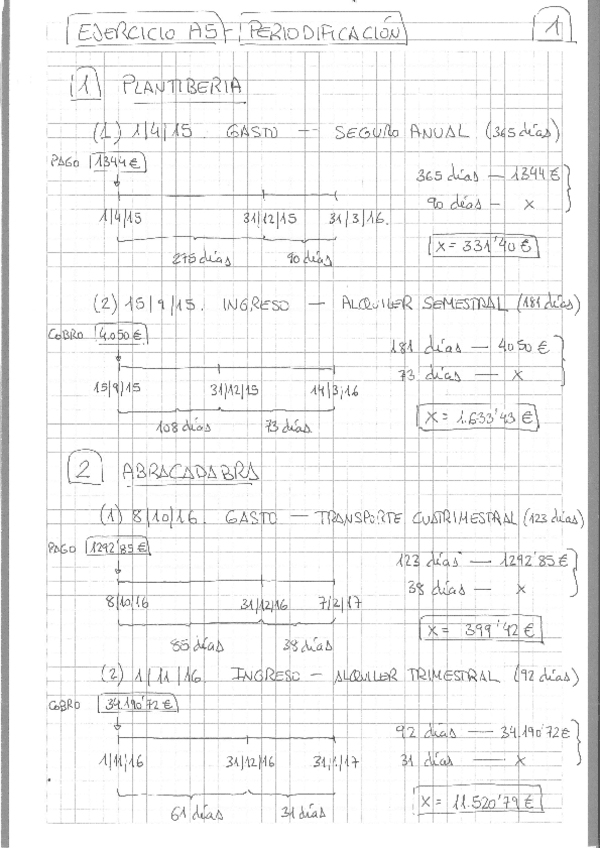 EJERCICIO A5 - PERIODIFICACIÓN 1
1 PLANTIBERIA
(1) 1/4/15. GASTO — SEGURO ANUAL (365 días)
PAGO 1344 € 365 días — 1344 €
90 días — x
1/4/15 31/12/15 31/3/16.
X = 331'40 €
275 días 90 días
(2) 15/9/15. INGRESO — ALQUILER SEMESTRAL (181 días)
COBRO 4.050 € 181 días — 4050 €
73 días — x
15/9/15 31/12/15 14/3/16
X = 1.633'43 €
108 días 73 días
2 ABRACADABRA
(1) 8/10/16. GASTO — TRANSPORTE CUATRIMESTRAL (123 días)
PAGO 1292'85 € 123 días — 1292'85 €
38 días — x
8/10/16 31/12/16 7/2/17
X = 399'42 €
85 días 38 días
(2) 1/11/16. INGRESO — ALQUILER TRIMESTRAL (92 días)
COBRO 34.190'72 € 92 días — 34.190'72 €
31 días — x
1/11/16 31/12/16 31/1/17
X = 11.520'79 €
61 días 31 días